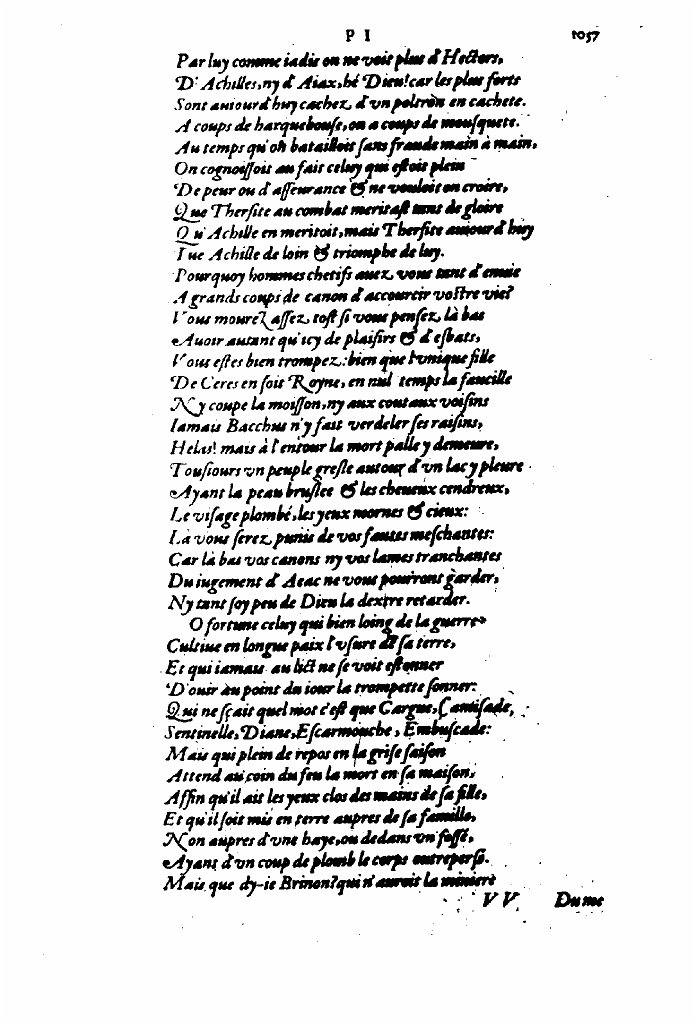 P I 1057
Par luy comme iadis on ne voit plus d'Hectors,
D'Achilles, ny d'Aiax, hé Dieu! car les plus forts
Sont auiourd'huy cachez d'vn poltrõn en cachete.
A coups de harquebouse, on a coups de mousquete.
Au temps qu'on batailloit sans fraude main à main,
On cognoissoit au fait celuy qui estoit plein
De peur ou d'asseurance & ne vouloit on croire,
Que Thersite au combat meritast tant de gloire
Qu'Achille en meritoit, mais Thersite auiourd'huy
Tue Achille de loin & triomphe de luy.
Pourquoy hommes chetifs auez vous tant d'enuie
A grands coups de canon d'accourcir vostre vie?
Vous mourez assez tost si vous pensez là bas
Auoir autant qu'icy de plaisirs & d'esbats,
Vous estes bien trompez: bien que l'vnique fille
De Ceres en soit Royne, en nul temps la faucille
N'y coupe la moisson, ny aux coutaux voisins
Iamais Bacchus n'y fait verdeler ses raisins,
Helas! mais à l'entour la mort palle y demeure,
Tousiours vn peuple gresle autour d'vn lac y pleure
Ayant la peau bruslee & les cheueux cendreux,
Le visage plombé, les yeux mornes & cieux:
Là vous serez punis de vos fautes meschantes:
Car là bas vos canons ny vos lames tranchantes
Du iugement d'Aeac ne vous pourront garder,
Ny tant soy peu de Dieu la dextre retarder.
O fortuné celuy qui bien loing de la guerre
Cultiue en longue paix l'vsure de sa terre,
Et qui iamais au lict ne se voit estonner
D'ouir au point du iour la trompette sonner:
Qui ne sçait quel mot c'est que Cargue, Camisade,
Sentinelle, Diane, Escarmouche, Embuscade:
Mais qui plein de repos en la grise saison
Attend au coin du feu la mort en sa maison,
Affin qu'il ait les yeux clos des mains de sa fille,
Et qu'il soit mis en terre aupres de sa famille,
Non aupres d'vne haye, ou dedans vn fossé,
Ayant d'vn coup de plomb le corps outrepersé.
Mais que dy-ie Brinon? qui n'auroit la miniere
V V Du me